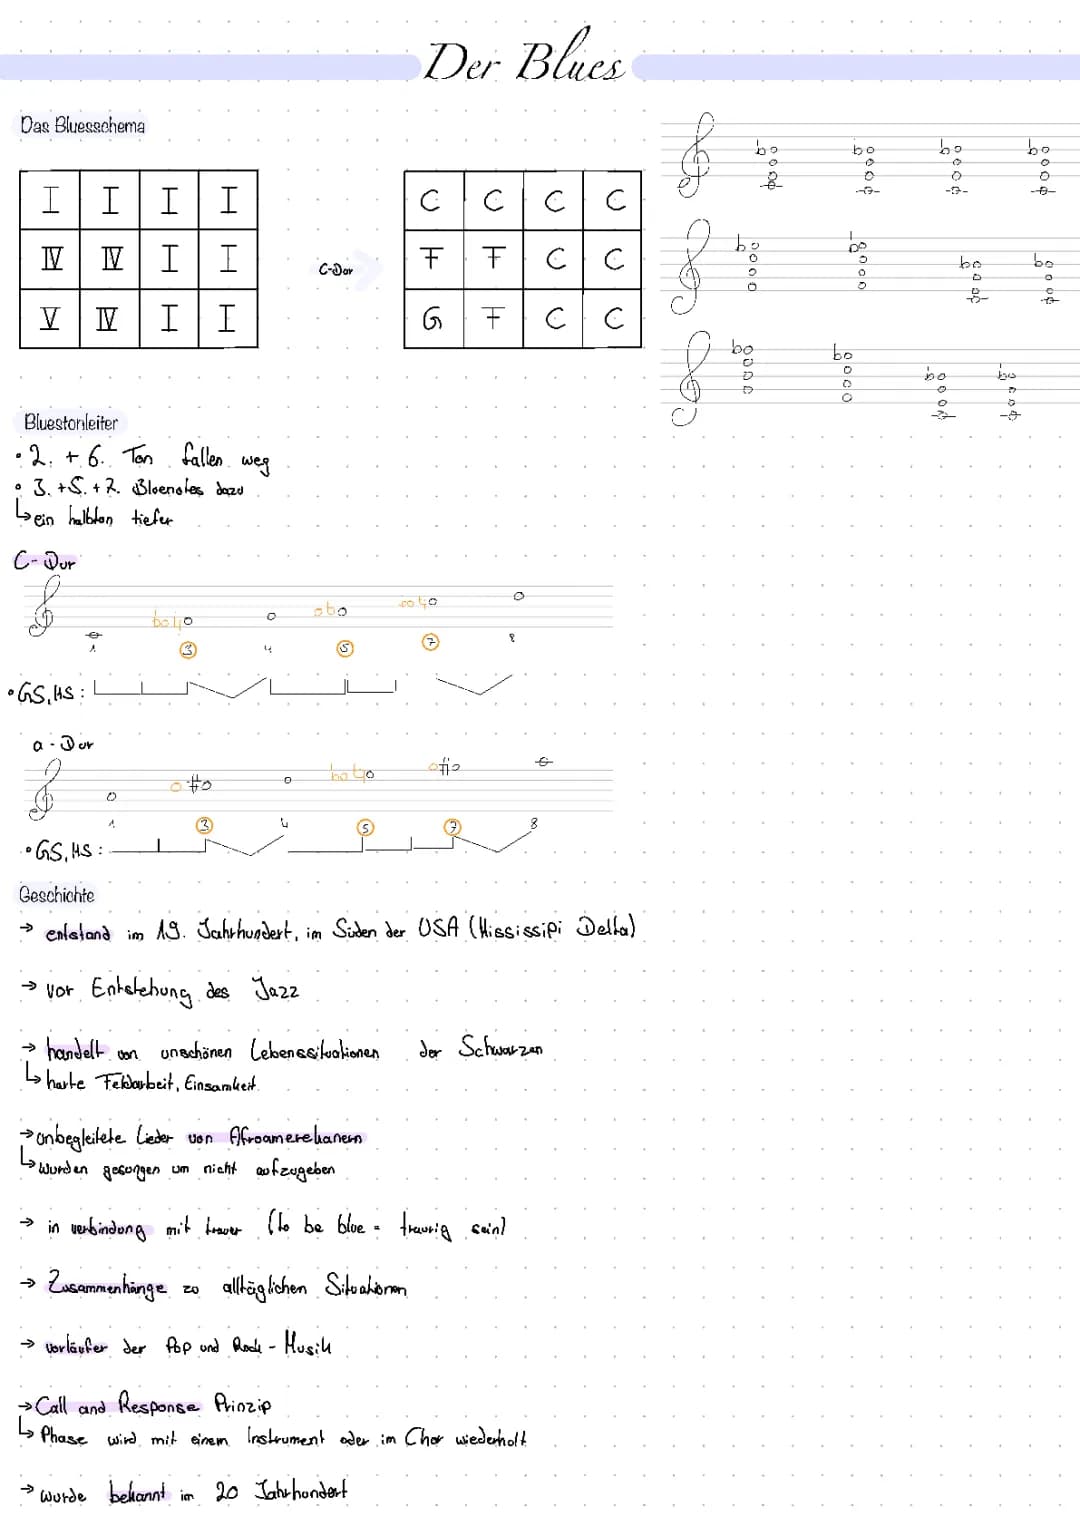 Der Blues
Das Bluesschema
I I I I
IV IV I I
V IV I I
C-Dur
C C C C
F F C C
G F C C
Bluestonleiter
• 2. + 6. Ton fallen weg
• 3. +5. + 7. Bluenotes dazu
↳ ein halbton tiefer
C-Dur
1 3 4 5 7 8
• GS, HS :
a - Dur
1 3 4 5 7 8
• GS, HS :
Geschichte
→ entstand im 19. Jahrhundert, im Süden der USA (Mississipi Delta)
→ vor Entstehung des Jazz
→ handelt von unschönen Lebenssituationen der Schwarzen
↳ harte Feldarbeit, Einsamkeit
→ unbegleitete Lieder von Afroamerekanern
↳ wurden gesungen um nicht aufzugeben
→ in verbindung mit trauer (to be blue = traurig sein)
→ Zusammenhänge zu alltäglichen Situationen
→ vorläufer der Pop und Rock - Musik
→ Call and Response Prinzip
↳ Phase wird mit einem Instrument oder im Chor wiederholt
→ wurde bekannt im 20 Jahrhundert